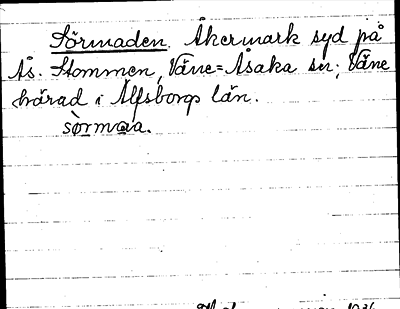 Sörmaden. Åkermark syd på
Ås. Stommen, Väne=Åsaka sn; Väne
härad i Älfsborgs län.
sòrmaa.